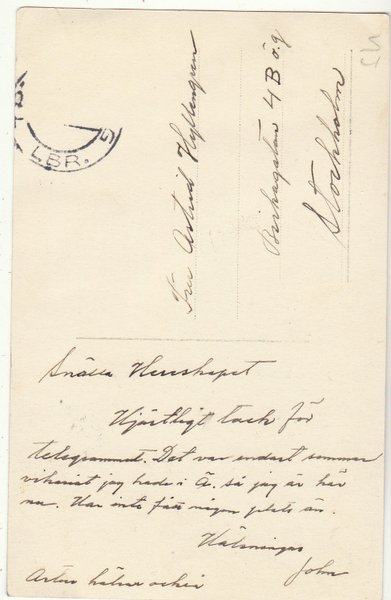 LBR.
Fru Astrid Hyllengren
Birkagatan 4 B ö.g
Stockholm
Snälla Herrskapet
Hjärtligt tack för
telegrammet. Det var endast sommar
vikariat jag hade i Ä. så jag är här
nu. Har inte fått någon plats än.
Hälsningar
John
Astor hälsar också